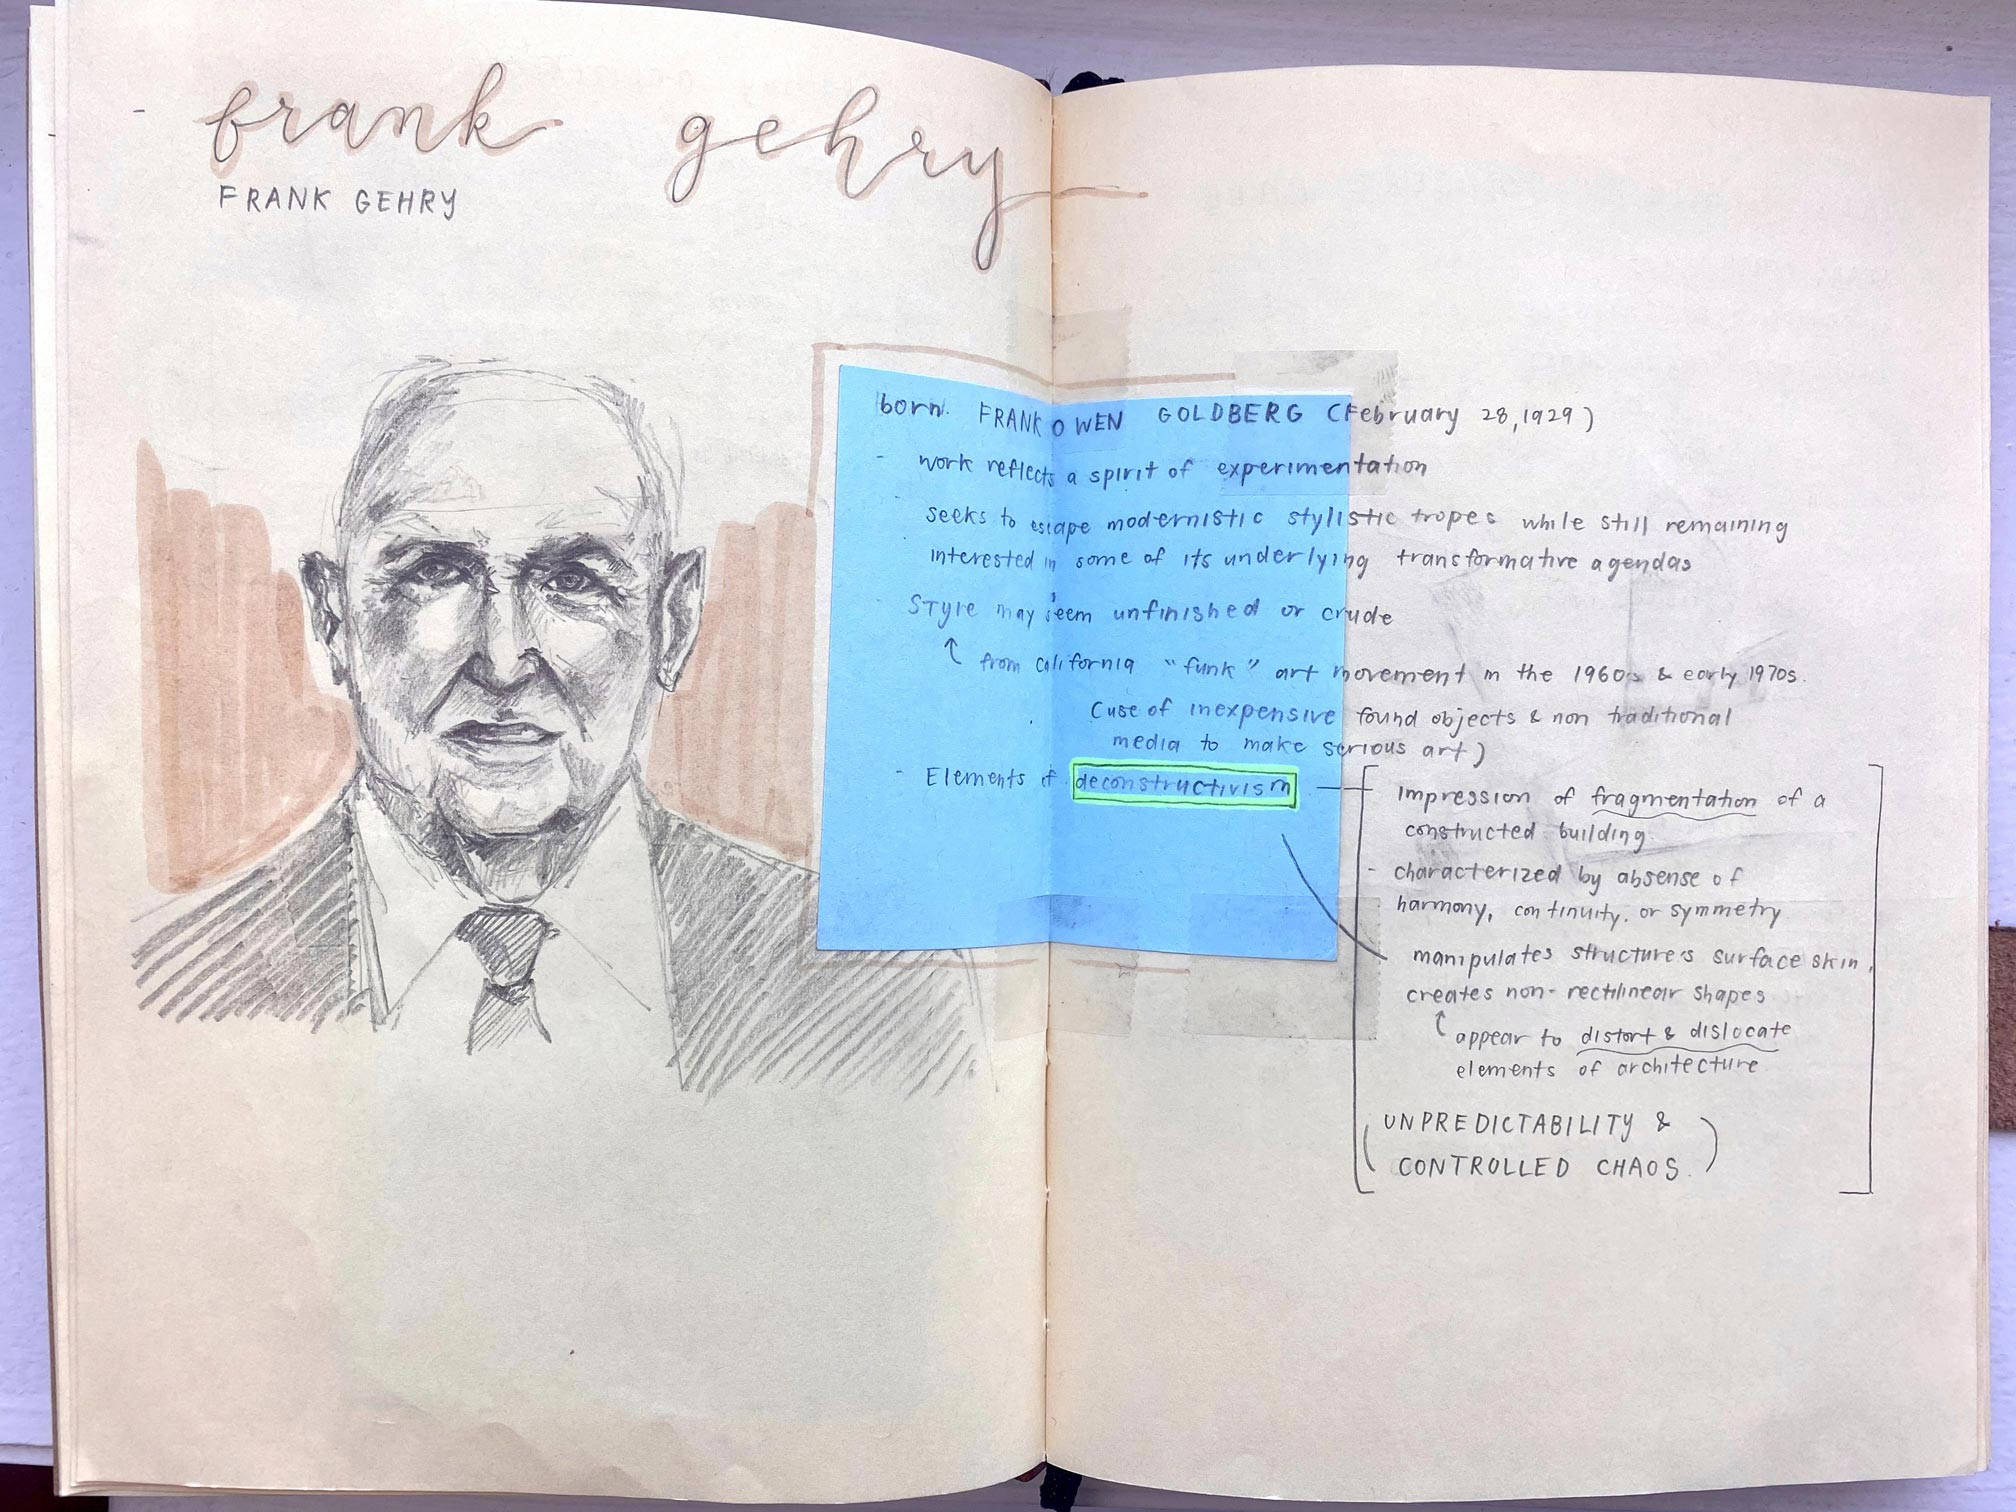 - frank gehry
FRANK GEHRY
born. FRANK OWEN GOLDBERG (February 28, 1929)
- work reflects a spirit of experimentation
- seeks to escape modernistic stylistic tropes while still remaining
interested in some of its underlying transformative agendas
- Style may seem unfinished or crude
↑ from california "funk" art movement in the 1960s & early 1970s.
(use of inexpensive found objects & non traditional
media to make serious art)
- Elements of deconstructivism
impression of fragmentation of a
constructed building.
- characterized by absense of
harmony, continuity, or symmetry
manipulates structure's surface skin,
creates non-rectilinear shapes
↑ appear to distort & dislocate
elements of architecture
(UNPREDICTABILITY &
CONTROLLED CHAOS.)